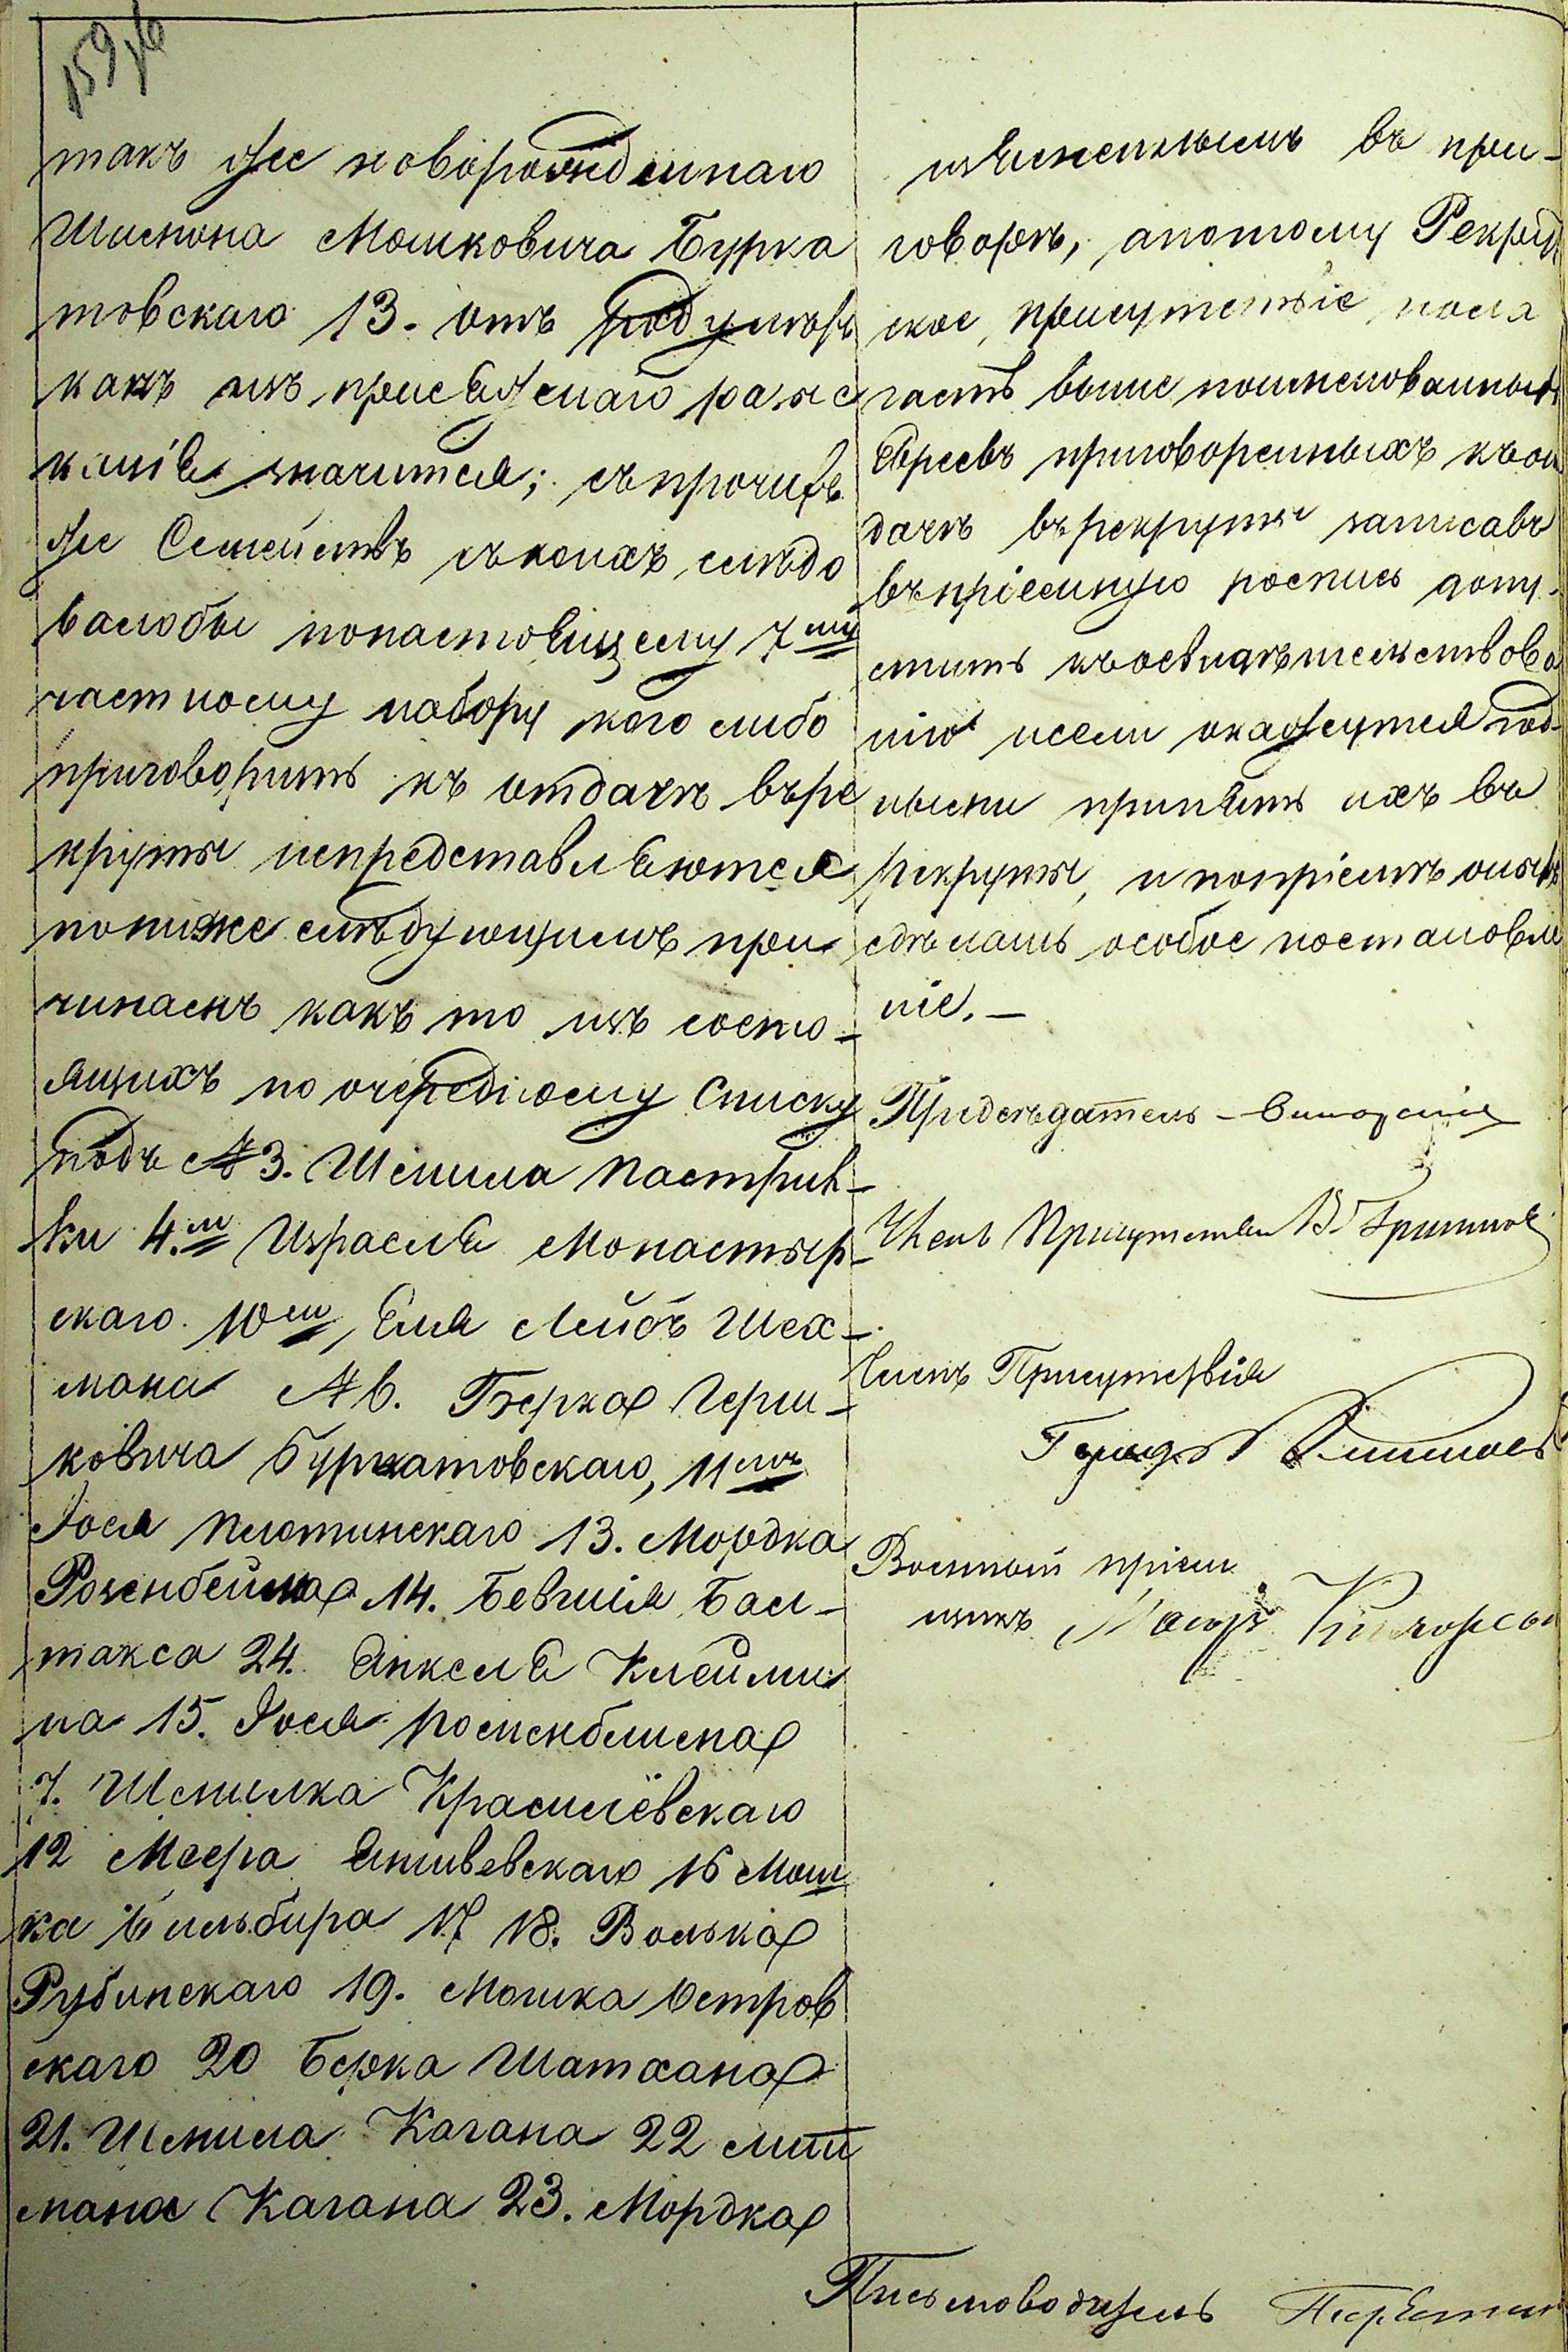 159
такъ же новорожденнаго
Шимона Мошковича Бурка
товскаго 13. отъ
какъ изъ присяжнаго разыс
канія значится; съ прочихъ
же Семействъ съ коихъ слѣдо
валобы понастоящему 7му
частному набору кого либо
приговорить къ отдачѣ въре
круты непредставляются
пониже слѣдующимъ при
чинамъ какъ то изъ состо-
ящихъ по очередному Списку
подъ № 3. Шмила Пастрив-
ки 4.м Израеля Монастыр-
скаго 10м, Еля Лейбъ Шех-
мана № 6. Берка Герш-
ковича Буркатовскаго, 11мъ
Іося Плотинскаго 13. Мордка
Розенбейма 14. Бал-
такса 24. Янкеля Клейми
на 15. Іося
7. Шмилка Красилёвскаго
12 Меера 16 Мош
ка Зильбира 17 18. Волька
Рубинскаго 19. Мошка Остров
скаго 20 Берка Шатхана
21. Шмила Кагана 22
мана Кагана 23. Мордка
въ при-
говорѣ, апотому Рекрут
ское присутствіе пола
гаетъ выше поименованныхъ
Евреевъ приговоренныхъ къот
дачѣ върекруты записавъ
въпріемную роспись допу-
стить къосвидѣтельствова
нію иесли окажутся год-
ными принять ихъ въ
рекруты, и попріемѣ оныхъ
сдѣлать особое постановле
ніе.-
Предсѣдатель -
Членъ Присутствія
Членъ Присутствія
Военный пріем
щикъ Маіоръ
Письмоводитель